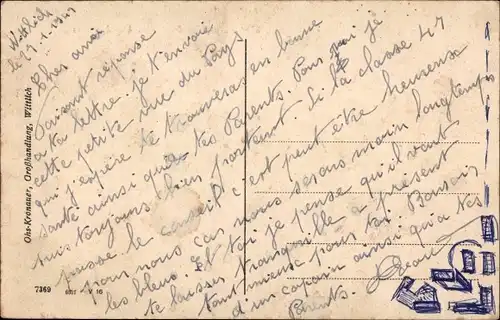 Wittlich
le 29.1.1947
Cher ami
Faisant réponse
à ta lettre je t'envoie
cette petite vue du Pays
qui j'espère te trouveras en bonne
santé ainsi que tes Parents. Pour moi je
suis toujours bien portant. Si la classe 47
passe le conseil c'est peut être heureuse
pour nous car nous serons moin longtemps
les bleus. Et toi je pense qu'il vont
te laisser tranquille à présent
tant mieux pour toi. Bonsoir
d'un copain ainsi qu'a tes
Parents.
Ohs-Kronauer, Großhandlung, Wittlich
7369
V 16